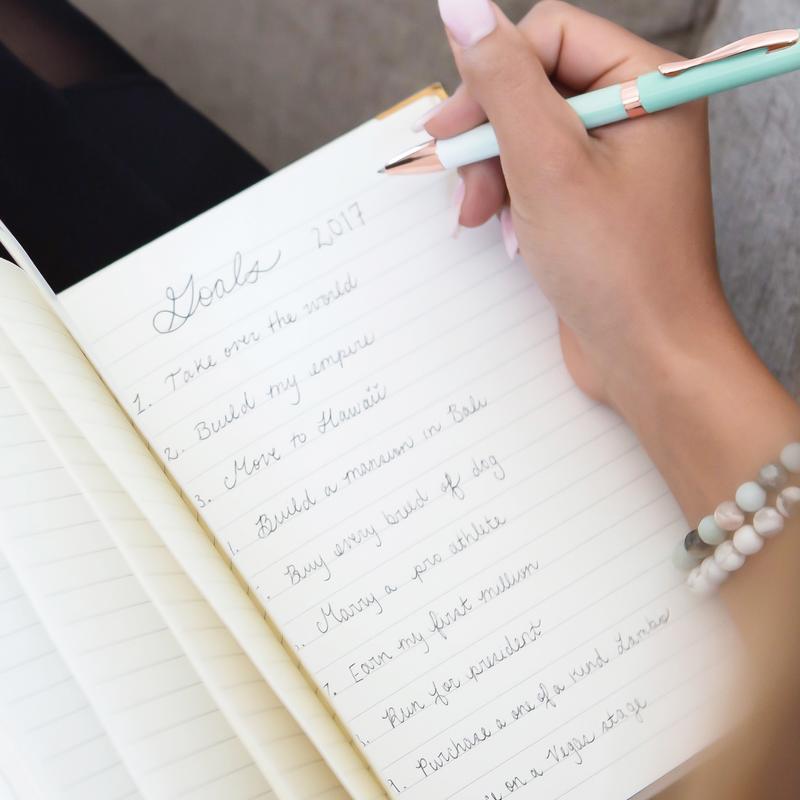 Goals 2017
1. Take over the world
2. Build my empire
3. Move to Hawaii
Build a mansion in Bali
Buy every breed of dog
Marry a pro athlete
7. Earn my first million
Run for president
9. Purchase a one of a kind Lambo
on a Vegas stage